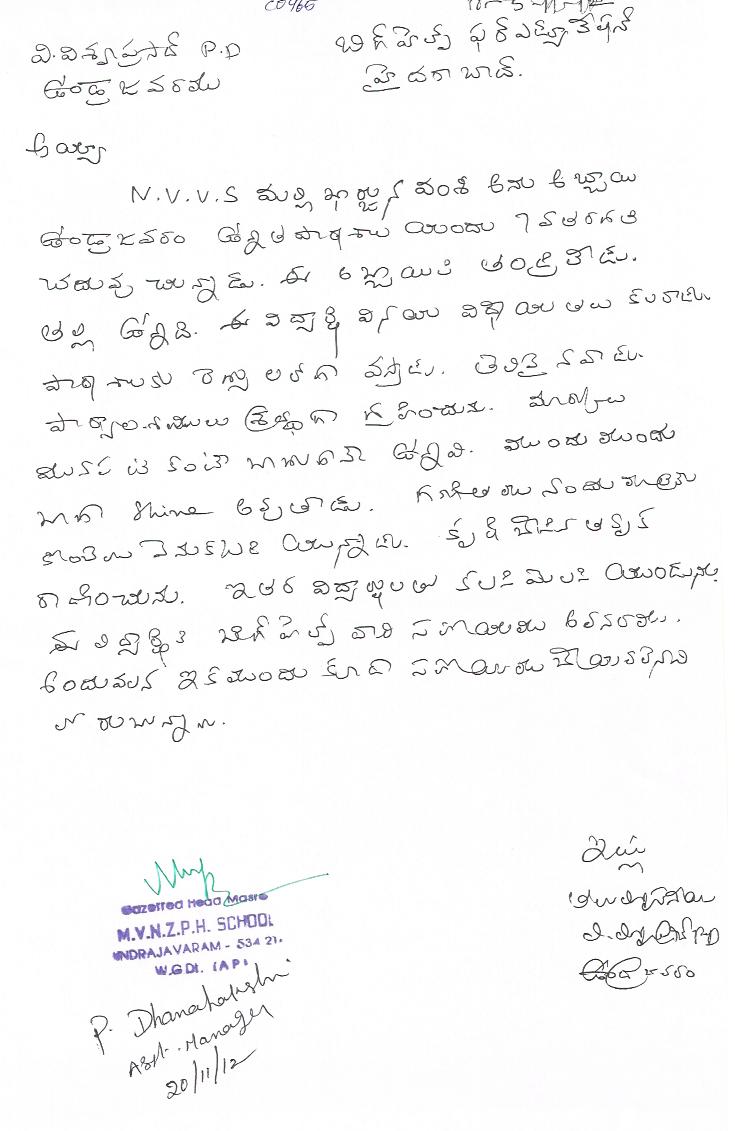 C0466
వి. విశ్వప్రసాద్ P.D
ఉండ్రాజవరము
బిగ్ హెల్ప్ ఫర్ ఎడ్యుకేషన్
హైదరాబాద్.
అయ్యా
N.V.V.S మల్లిఖార్జున వంశీ అను అబ్బాయి
ఉండ్రాజవరం ఉన్నత పాఠశాల యందు 7 వ తరగతి
చదువుచున్నాడు. ఈ అబ్బాయికి తండ్రి లేడు.
తల్లి ఉన్నది. ఈ విద్యార్థి వినయ విధేయతలు కలవాడు.
పాఠశాలకు రెగ్యులర్ గా వస్తాడు. తెలివైనవాడు.
పాఠ్యాంశములు శ్రద్ధగా గ్రహించును. మార్కులు
మునుపటి కంటె బాగుగానే ఉన్నవి. ముందు ముందు
బాగా Shine అవుతాడు. గణితము నందు మాత్రము
కొంచెము వెనుకబడి యున్నాడు. కృషి చేస్తే తప్పక
రాణించును. ఇతర విద్యార్థులతో కలసి మెలసి యుండును.
ఈ విద్యార్థికి బిగ్ హెల్ప్ వారి సహాయము అవసరము.
అందువలన ఇక ముందు కూడా సహాయము చేయవలసినది
గా కోరుచున్నాను.
ఇట్లు
తమ విశ్వసనీయ
వి. విశ్వప్రసాద్ PD
ఉండ్రాజవరం
Gazetted Head Maste
M.V.N.Z.P.H. SCHOOL
UNDRAJAVARAM - 534 21.
W.G.Dt. (AP)
P. Dhanalakshmi
Asst. Manager
20/11/12